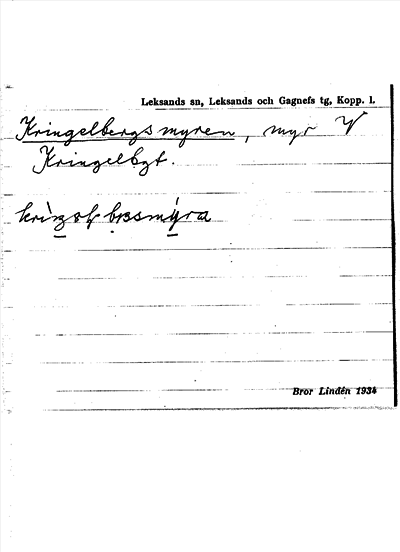 Leksands sn, Leksands och Gagnefs tg, Kopp. l.
Kringelbergsmyren, myr V
Kringelbgt.
Bror Lindén 1934